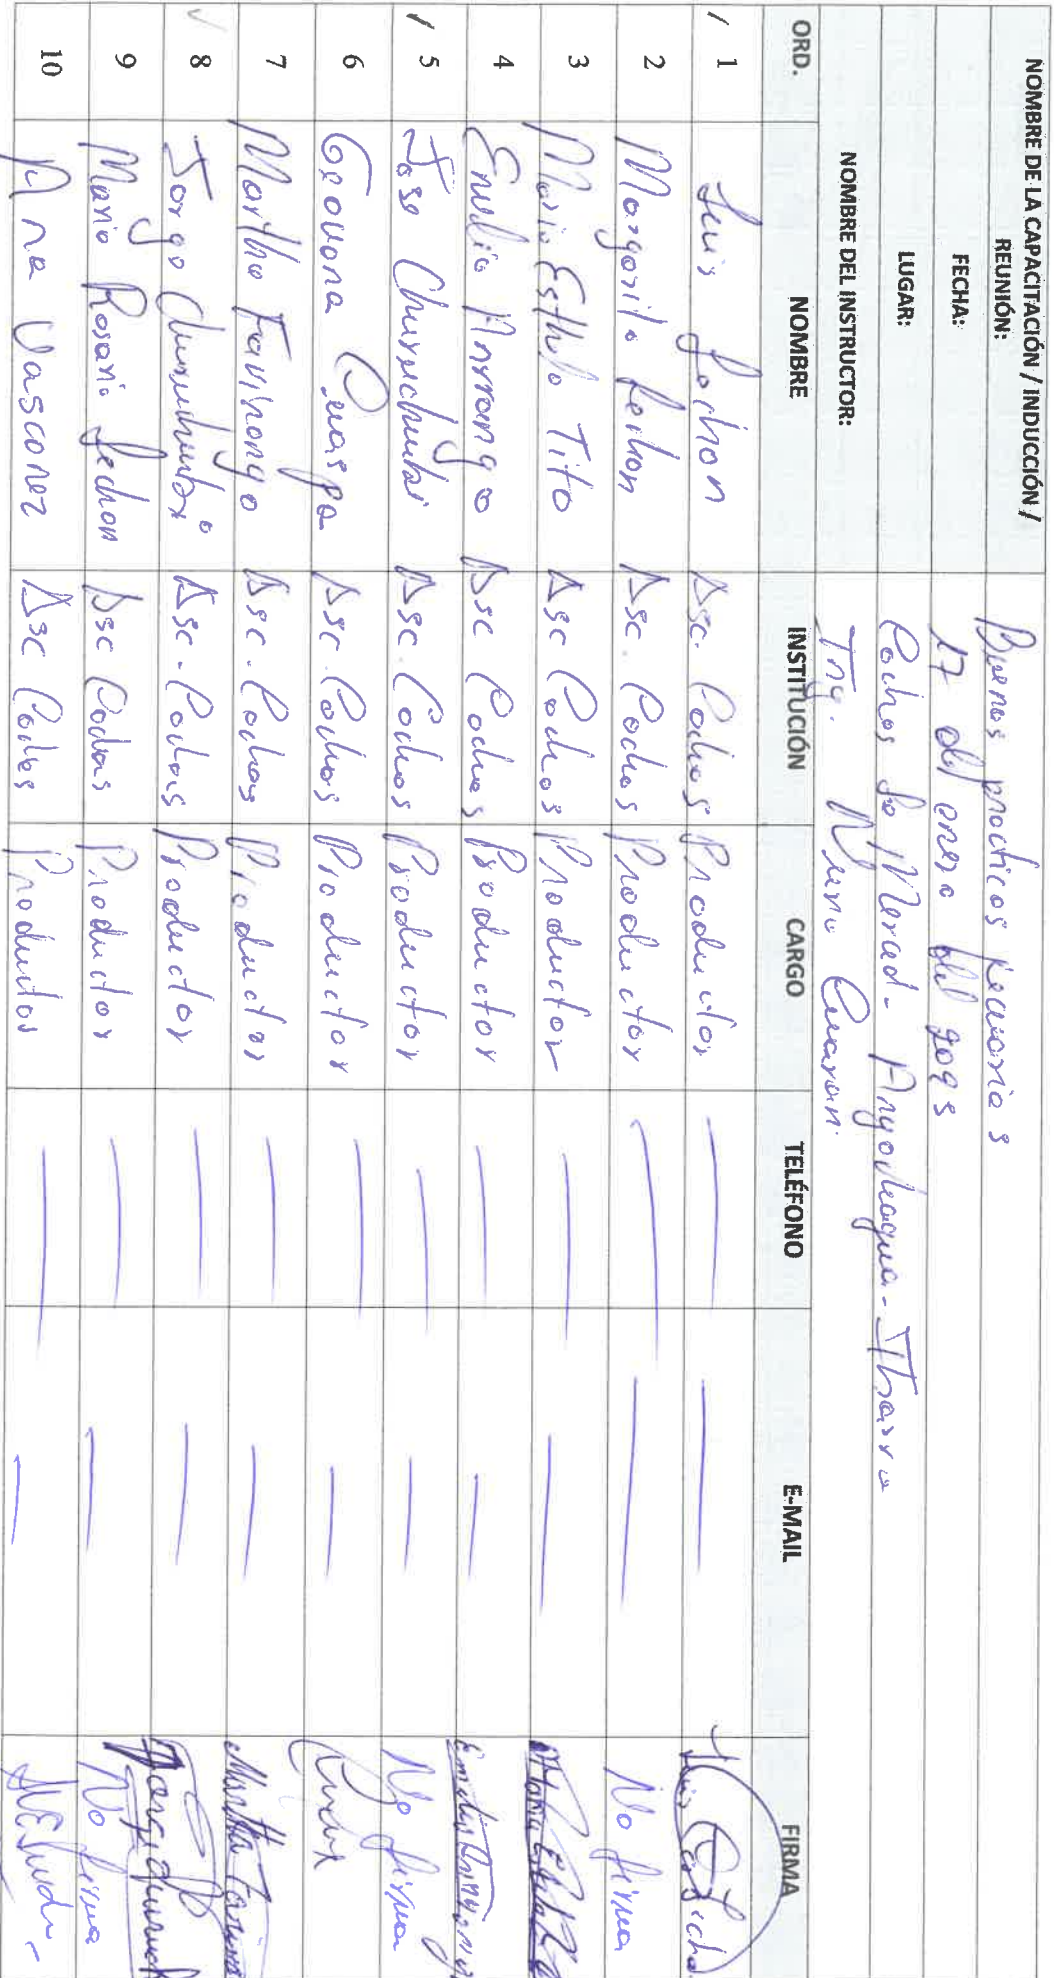 NOMBRE DE LA CAPACITACIÓN / INDUCCIÓN / REUNIÓN: Buenas practicas pecuarias
FECHA: 17 de enero del 2025
LUGAR: Cochas La Merced - Angochagua - Ibarra
NOMBRE DEL INSTRUCTOR: Ing. Nuno Cuaran.
ORD. NOMBRE INSTITUCIÓN CARGO TELÉFONO E-MAIL FIRMA
1 Luis Lechon Asc. Cochas Productor — — Luis
2 Margarita Lechon Asc. Cochas Productor — — No firma
3 Maria Esthela Tito Asc Cochas Productor — —
4 Emilia Arrango Asc Cochas Productor — —
5 Jose Churuchumbi Asc. Cochas Productor — — No firma
6 Geovana Cuaspa Asc. Cochas Productor — —
7 Martha Farinango Asc. Cochas Productor — — Martha
8 Jorge Churuchumbi Asc. Cochas Productor — — Jorge
9 Maria Rosario Lechon Asc Cochas Productor — — No firma
10 Ana Vasconez Asc Cochas Productor — —